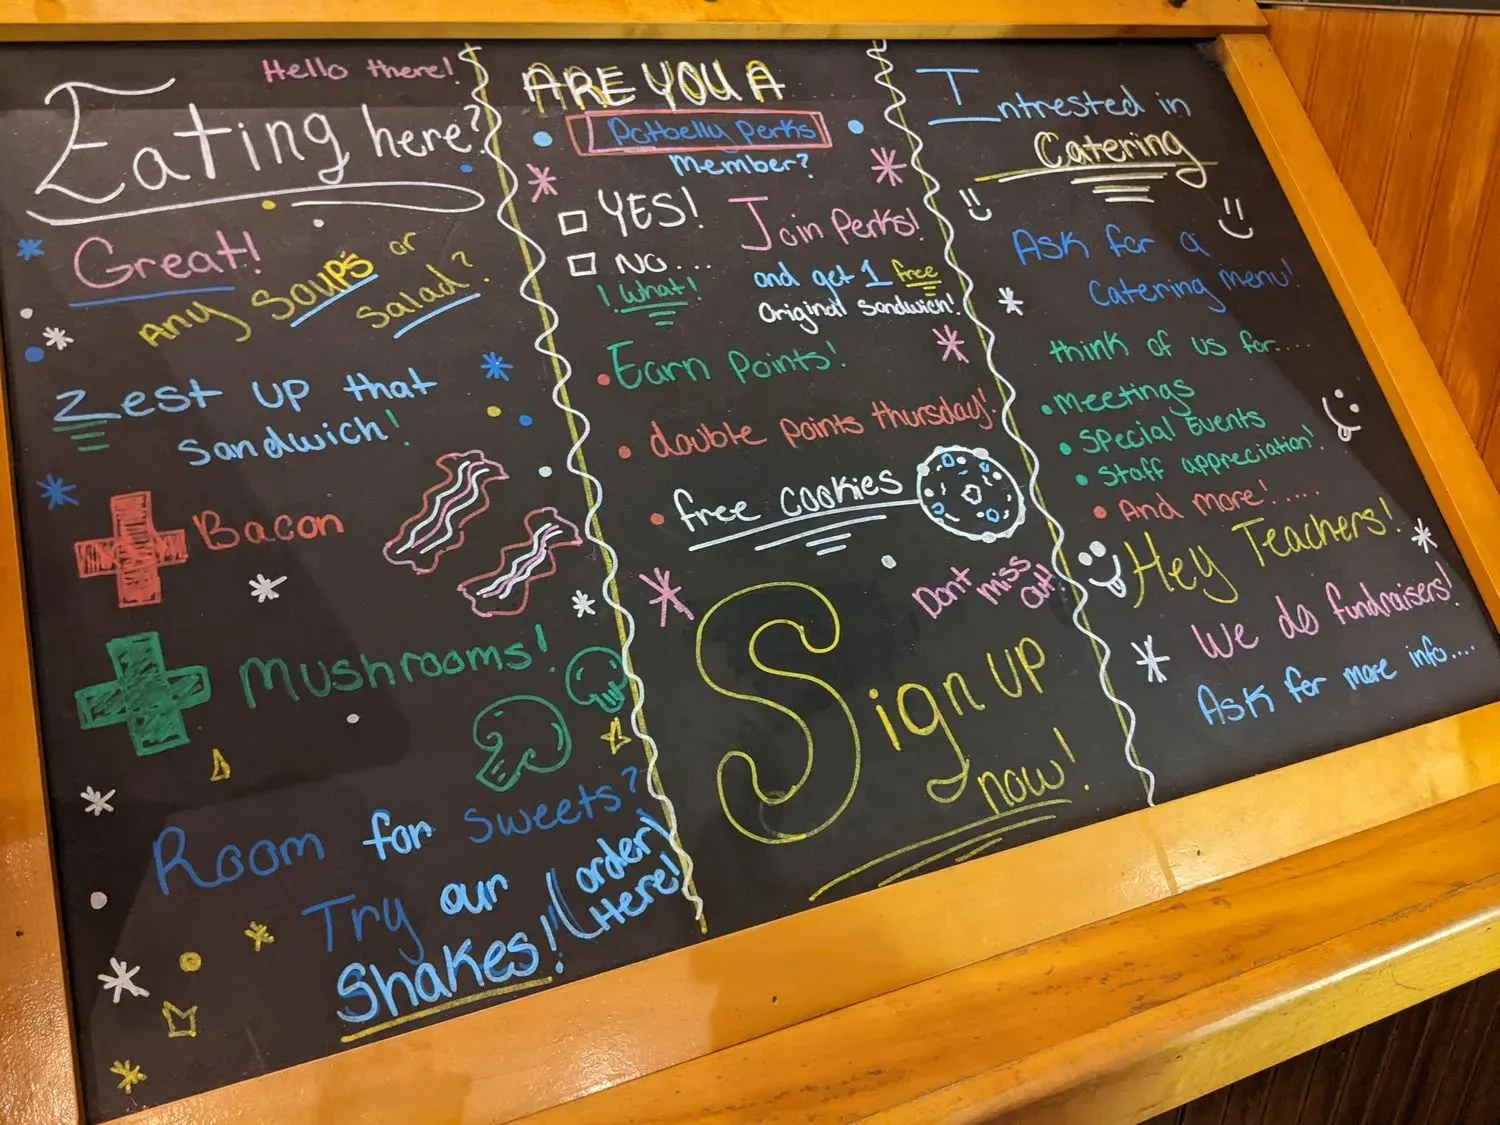 Hello there!
Eating here?
Great!
Any Soups or
Salad?
Zest up that
Sandwich!
Bacon
Mushrooms!
Room for sweets?
Try our
Shakes! (order
Here!)
ARE YOU A
Potbelly Perks
Member?
YES!
NO...
! What!
Join Perks!
and get 1 free
Original Sandwich!
Earn Points!
double points thursday!
free cookies
Dont
miss
Out!
Sign up
now!
Intrested in
Catering
Ask for a
Catering menu!
think of us for....
Meetings
Special Events
Staff appreciation!
And more!.....
Hey Teachers!
We do fundraisers!
Ask for more info....